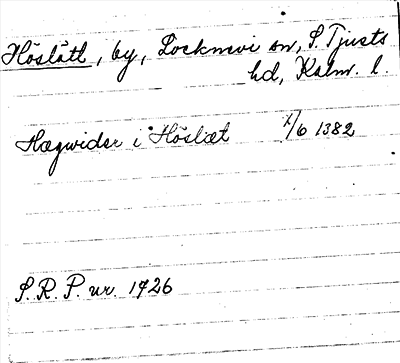 Höslätt, by, Locknevi sn, S. Tjusts
hd, Kalm. l.
Hægwider i Höslæt 1/6 1382
S.R.P. nr. 1926